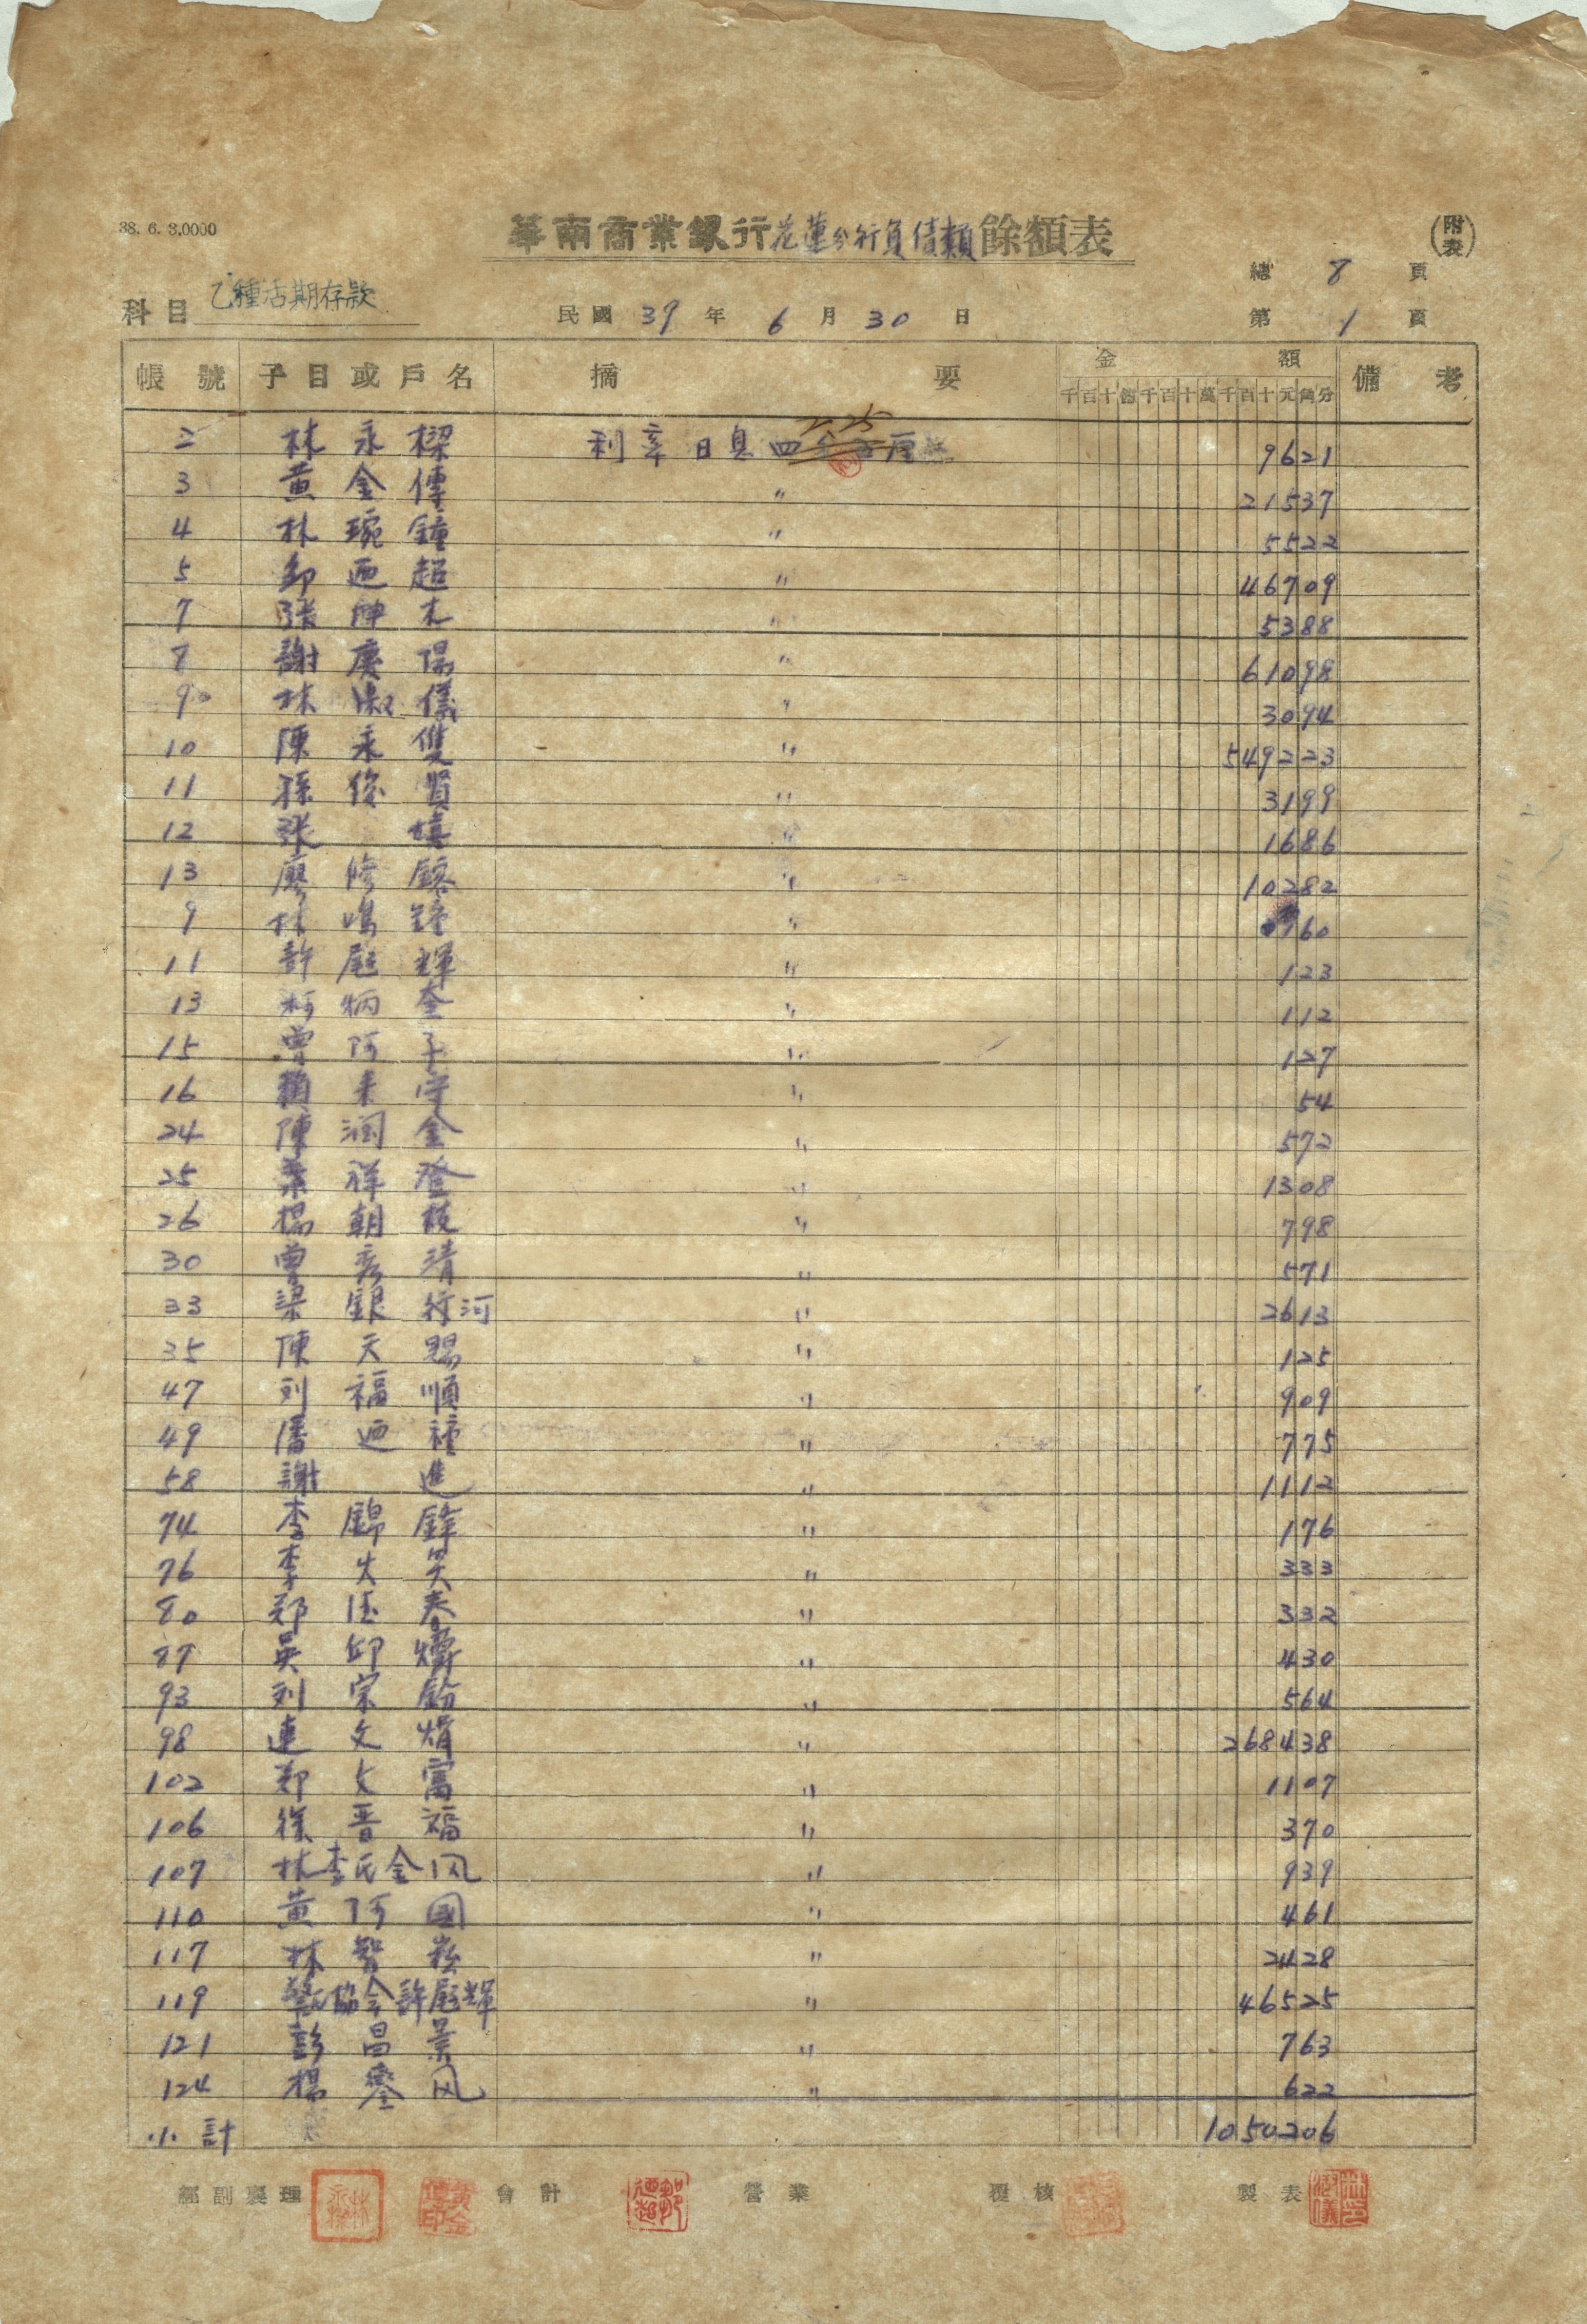 38. 6. 3.0000
華南商業銀行花蓮分行負債類餘額表
(附表)
總 8 頁
科目 乙種活期存款
民國 39 年 6 月 30 日
第 1 頁
帳號 子目或戶名 摘要 金額 備考
千百十億千百十萬千百十元角分
2 林永樑 利率日息四 2.25 厘 9621
3 黃金傳 〃 21537
4 林琬鐘 〃 5522
5 邹迺超 〃 46709
7 張坤木 〃 5388
8 謝慶陽 〃 61098
9 林淑儀 〃 3094
10 陳永雙 〃 549223
11 孫 賢 〃 3199
12 張 填 〃 1686
13 廖修鎔 〃 10282
9 林鳴鐘 〃 160
11 許 輝 〃 123
13 柯炳奎 〃 112
15 曾阿子 〃 127
16 賴來守 〃 54
24 陳潤金 〃 572
25 葉祥登 〃 1308
26 楊朝枝 〃 798
30 曾彥清 〃 571
33 梁銀行河 〃 2613
35 陳天賜 〃 125
47 刘福順 〃 909
49 潘迺種 〃 775
58 謝進 〃 1112
74 李錦鋒 〃 176
76 李火吳 〃 333
80 郑 春 〃 332
87 吳邱 〃 430
93 刘宗 〃 564
98 連文娟 〃 268438
102 郑文富 〃 1107
106 徐晋福 〃 370
107 林李氏金凤 〃 939
110 黃阿國 〃 461
117 林智崧 〃 2428
119 協会許 輝 〃 46525
121 彭昌景 〃 763
124 楊 凤 〃 622
小計 1050206
經副襄理 會計 營業 覆核 製表